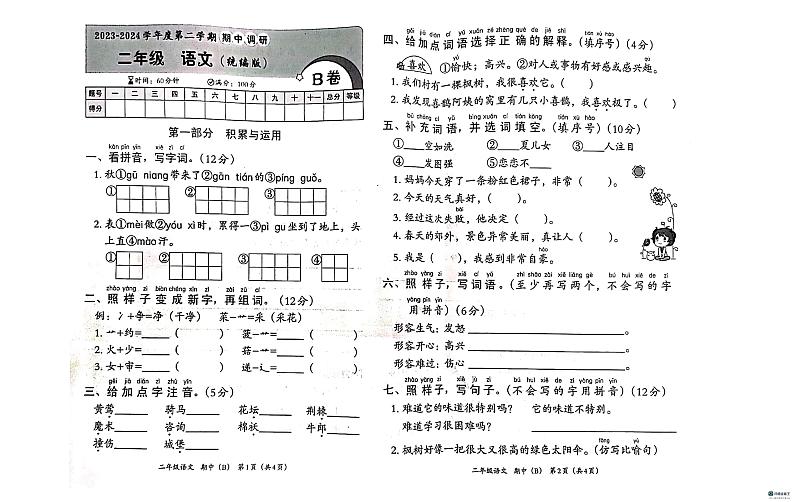 2023-2024学年度第二学期期中调研
二年级 语文(统编版)
B卷
时间:60分钟 满分:100分
题号 一 二 三 四 五 六 七 八 九 十 十一 总分 等级
得分
第一部分 积累与运用
kàn pīn yīn xiě zì cí
一、看拼音,写字词。(12分)
1.秋①gū niang带来了②gān tián的③píng guǒ。
2.表①mèi做②yóu xì时,累得一③pì gu坐到了地上,头
上直④mào汗。
zhào yàng zi biàn chéng xīn zì zài zǔ cí
二、照样子变成新字,再组词。(12分)
例:冫+争=净(干净) 菜-艹=采(采花)
1.艹+约=____( ) 菠-艹=____( )
2.火+少=____( ) 菇-艹=____( )
3.艹+右=____( ) 递-辶=____( )
gěi jiā diǎn zì zhù yīn
三、给加点字注音。(5分)
黄莺____ 骑马____ 花坛____ 荆棘____
魔术____ 咨询____ 棉袄____ 牛郎____
撞伤____ 城堡____
二年级语文 期中(B) 第1页(共4页)
gěi jiā diǎn cí yǔ xuǎn zé zhèng què de jiě shì tián xù hào
四、给加点词语选择正确的解释。(填序号)(4分)
喜欢 ①愉快;高兴。②对人或事物有好感或感兴趣。
1.我们村有一棵枫树,我很喜欢它。( )
2.我发现喜鹊阿姨的窝里有几只小喜鹊,我喜欢极了。( )
bǔ chōng cí yǔ bìng xuǎn cí tián kòng tián xù hào
五、补充词语,并选词填空。(填序号)(10分)
①____空如洗 ②____夏儿女 ③____人注目
④____发图强 ⑤恋恋不____
1.妈妈今天穿了一条粉红色裙子,非常( )。
2.今天的天气真好,( )。
3.经过这次失败,他决定( )。
4.春天的郊外,景色异常美丽,真让人( )。
5.我是( ),我感到非常自豪。
zhào yàng zi xiě cí yǔ zhì shǎo zài xiě liǎng gè bú huì xiě de zì
六、照样子,写词语。(至少再写两个,不会写的字
yòng pīn yīn
用拼音)(6分)
形容生气:发怒 ____。
形容高兴:激动 ____。
形容难过:伤心 ____。
zhào yàng zi xiě jù zi bú huì xiě de zì yòng pīn yīn
七、照样子,写句子。(不会写的字用拼音)(12分)
1.难道它的味道很特别吗? 它的味道不特别。
难道学习很困难吗? ____
2.枫树好像一把很大又很高的绿色太阳伞。(仿写比喻句)
二年级语文 期中(B) 第2页(共4页)